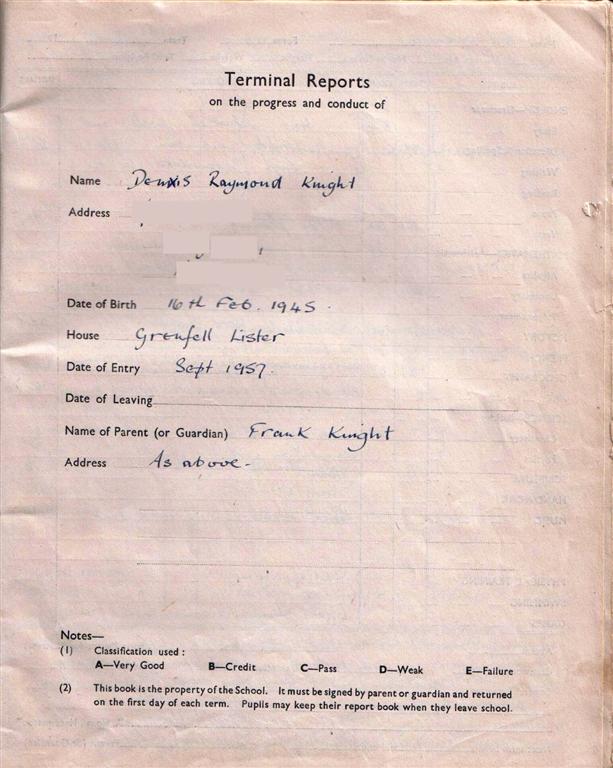 Terminal Reports
on the progress and conduct of
Name Dennis Raymond Knight
Address
Date of Birth 16th Feb. 1945.
House Grenfell Lister
Date of Entry Sept 1957.
Date of Leaving
Name of Parent (or Guardian) Frank Knight
Address As above-
Notes—
(1) Classification used :
A—Very Good B—Credit C—Pass D—Weak E—Failure
(2) This book is the property of the School. It must be signed by parent or guardian and returned
on the first day of each term. Pupils may keep their report book when they leave school.